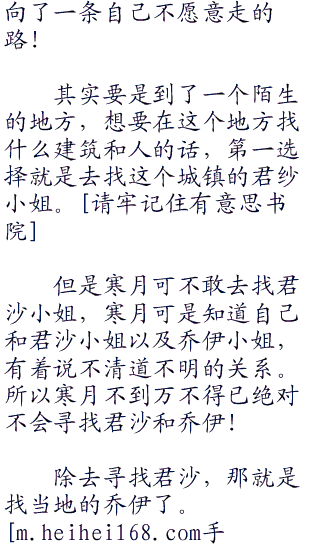 向了一条自己不愿意走的
路！
其实要是到了一个陌生
的地方，想要在这个地方找
什么建筑和人的话，第一选
择就是去找这个城镇的君纱
小姐。[请牢记住有意思书
院]
但是寒月可不敢去找君
沙小姐，寒月可是知道自己
和君沙小姐以及乔伊小姐，
有着说不清道不明的关系。
所以寒月不到万不得已绝对
不会寻找君沙和乔伊！
除去寻找君沙，那就是
找当地的乔伊了。
[m.heihei168.com手